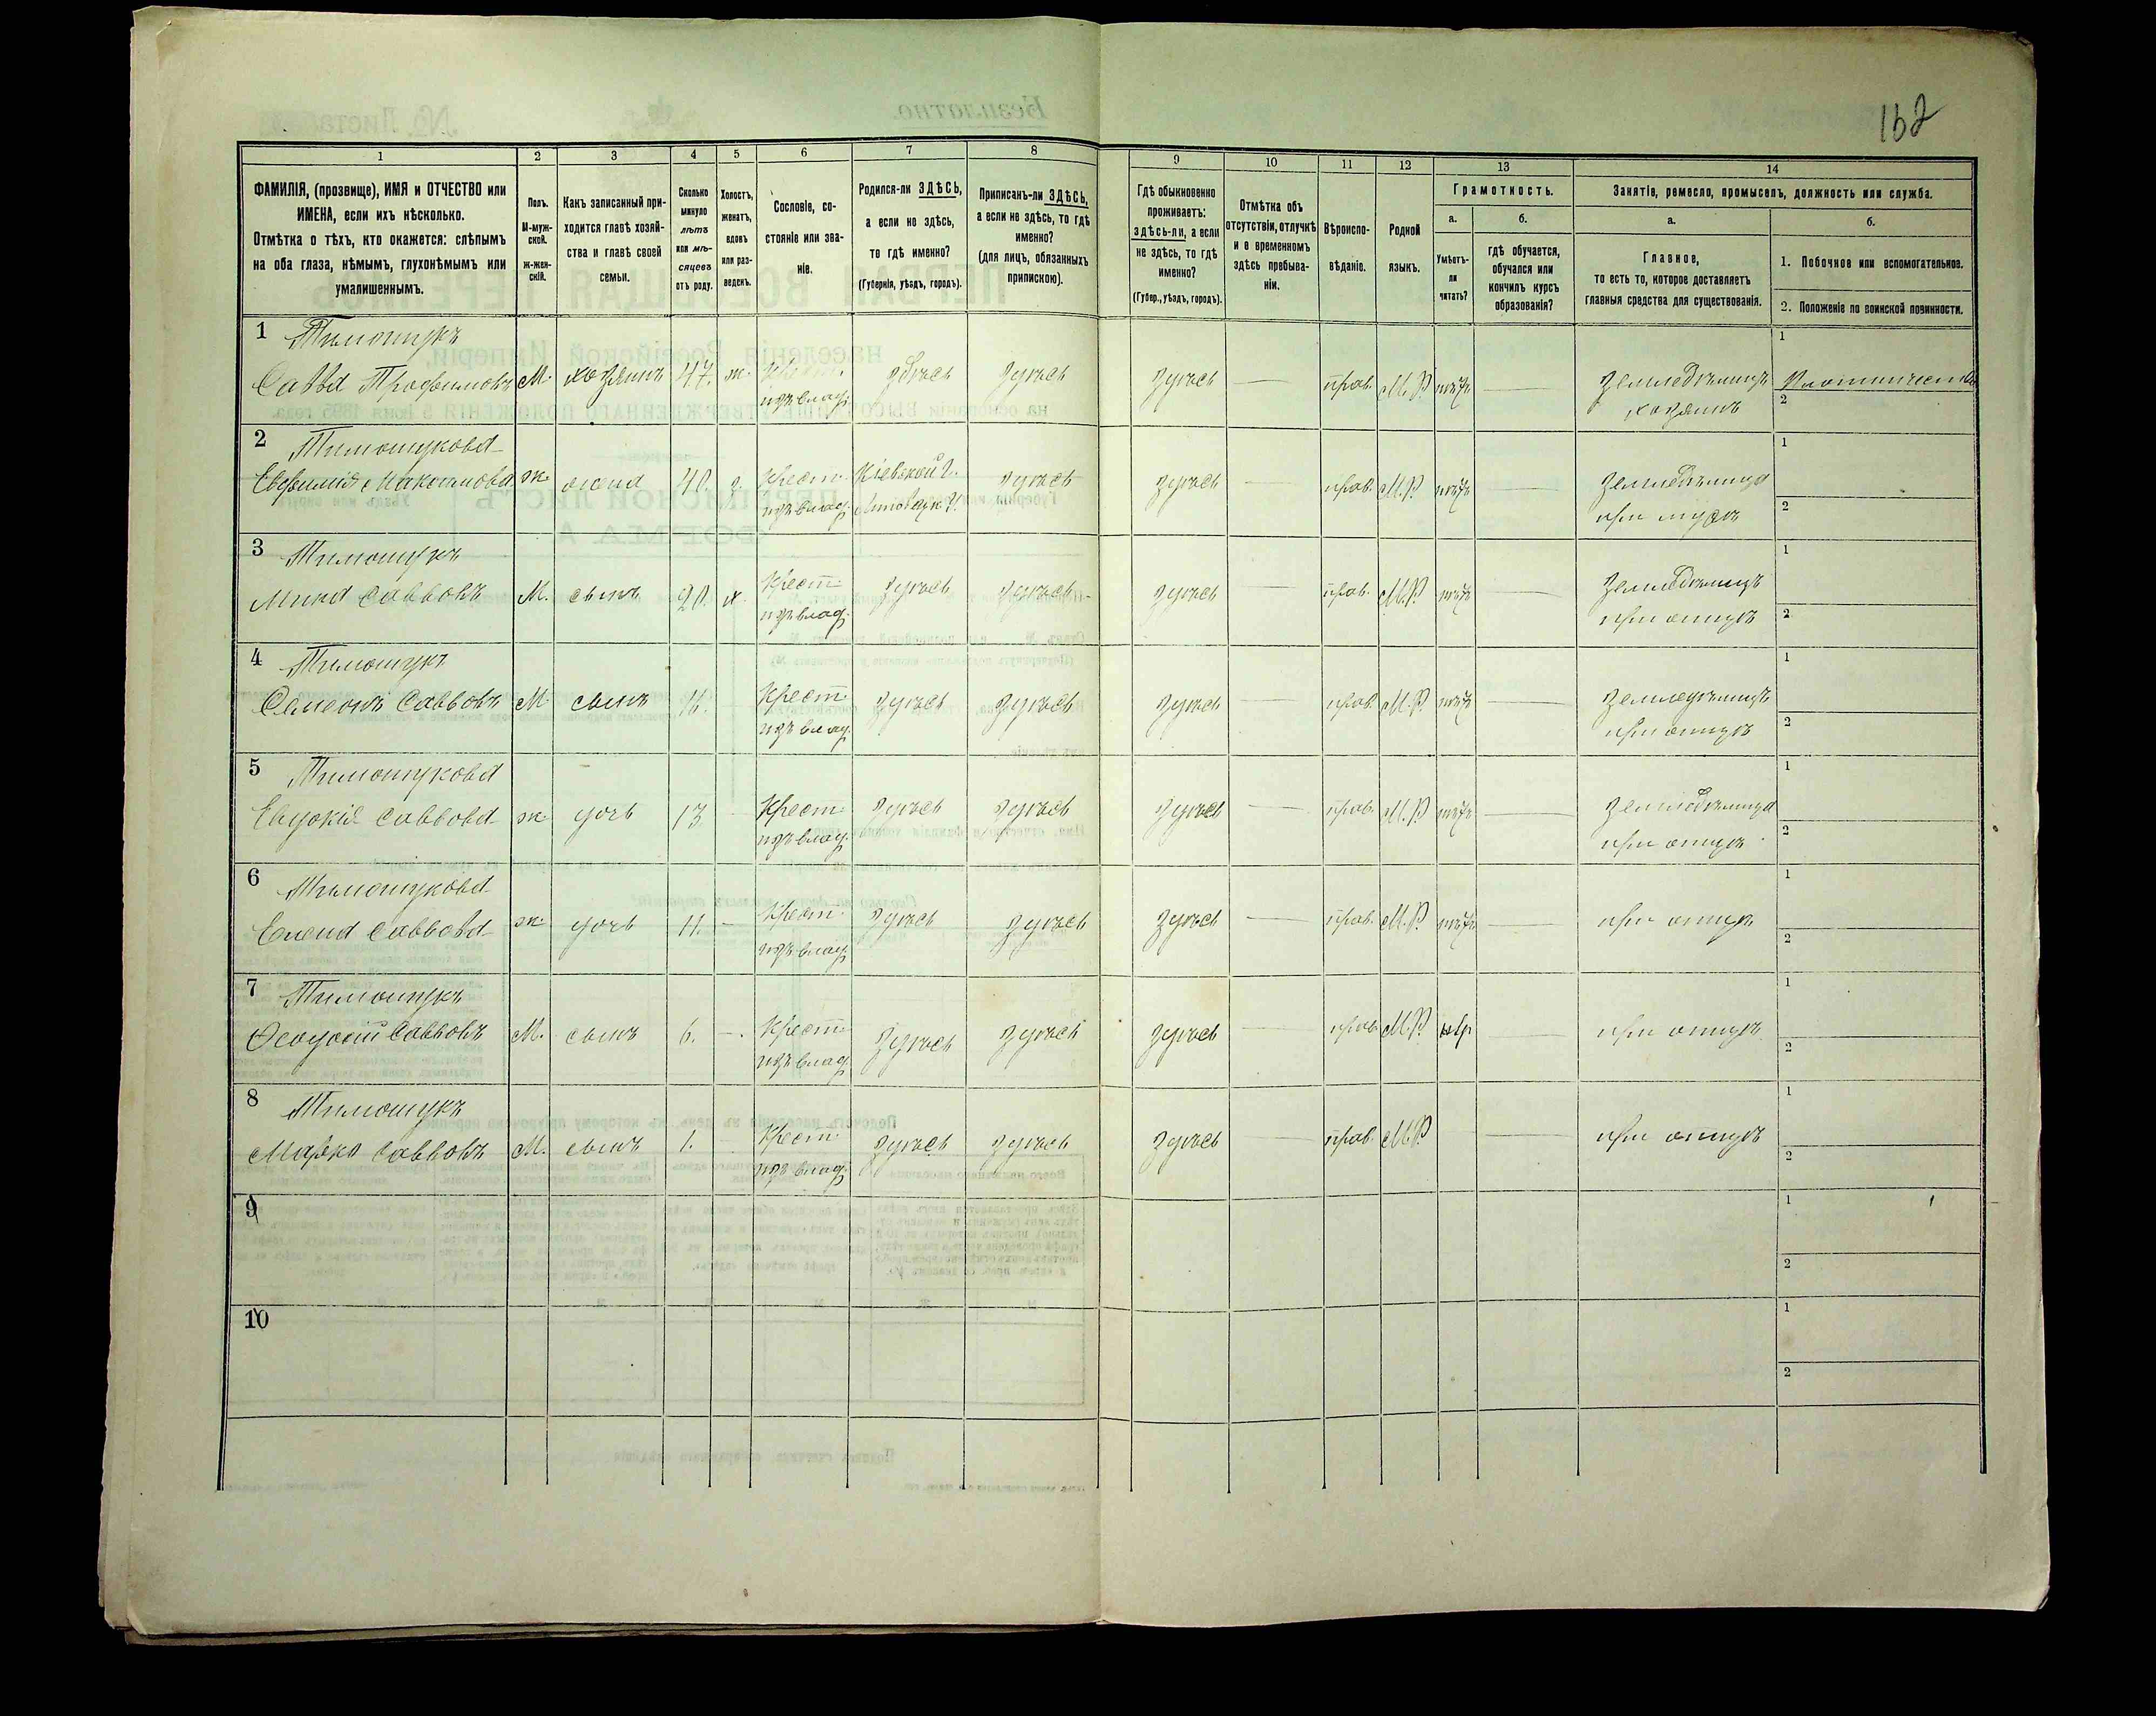 162
1 2 3 4 5 6 7 8 9 10 11 12 13 14
ФАМИЛІЯ, (прозвище), ИМЯ и ОТЧЕСТВО или
ИМЕНА, если ихъ нѣсколько.
Отмѣтка о тѣхъ, кто окажется: слѣпымъ
на оба глаза, нѣмымъ, глухонѣмымъ или
умалишеннымъ.
Полъ.
М-муж-
ской.
Ж-жен-
скій.
Какъ записанный при-
ходится главѣ хозяй-
ства и главѣ своей
семьи.
Сколько
минуло
лѣтъ
или мѣ-
сяцевъ
отъ роду.
Холостъ,
женатъ,
вдовъ
или раз-
веденъ.
Сословіе, со-
стояніе или зва-
ніе.
Родился-ли ЗДѢСЬ,
а если не здѣсь,
то гдѣ именно?
(Губернія, уѣздъ, городъ).
Приписанъ-ли ЗДѢСЬ,
а если не здѣсь, то гдѣ
именно?
(для лицъ, обязанныхъ
припискою).
Гдѣ обыкновенно
проживаетъ:
здѣсь-ли, а если
не здѣсь, то гдѣ
именно?
(Губер., уѣздъ, городъ).
Отмѣтка объ
отсутствіи, отлучкѣ
и о временномъ
здѣсь пребыва-
ніи.
Вѣроиспо-
вѣданіе.
Родной
языкъ.
Грамотность.
а. б.
Умѣетъ-
ли
читать?
гдѣ обучается,
обучался или
кончилъ курсъ
образованія?
Занятіе, ремесло, промыселъ, должность или служба.
а. б.
Главное,
то есть то, которое доставляетъ
главныя средства для существованія.
1. Побочное или вспомогательное.
2. Положеніе по воинской повинности.
1 Тимощукъ 1
Савва Трофимовъ М. хозяинъ 47. ж. Крест. здѣсь здѣсь здѣсь — прав. М.Р. нѣтъ — Земледѣлецъ Плотничество
изъ влад. хозяинъ 2
2 Тимощукова 1
Евфимія ж. жена 40. з. Крест. Кіевской г. здѣсь здѣсь — прав. М.Р. нѣтъ — Земледѣлица
изъ влад. Липовецк. у. при мужѣ 2
3 Тимощукъ 1
Мина Саввовъ М. сынъ 20. х. Крест. здѣсь здѣсь здѣсь — прав. М.Р. нѣтъ — Земледѣлецъ
изъ влад. при отцѣ 2
4 Тимощукъ 1
Семеонъ Саввовъ М сынъ Крест. здѣсь здѣсь здѣсь — прав. М.Р. нѣтъ — Земледѣлецъ
изъ влад. при отцѣ 2
5 Тимощукова 1
Евдокія Саввова ж дочь 13 - Крест. здѣсь здѣсь здѣсь — прав. М.Р. нѣтъ — Земледѣлица
изъ влад. при отцѣ 2
6 Тимощукова 1
Елена Саввова ж. дочь 11. - Крест. здѣсь здѣсь здѣсь — прав. М.Р. нѣтъ — при отцѣ
изъ влад. 2
7 Тимощукъ 1
Феодосій Саввовъ М. сынъ 6. - Крест. здѣсь здѣсь здѣсь — прав. М.Р. — при отцѣ
изъ влад. 2
8 Тимощукъ 1
Марко Саввовъ М. сынъ 1. Крест. здѣсь здѣсь здѣсь — прав. М.Р. — при отцѣ
изъ влад. 2
9 1
2
10 1
2